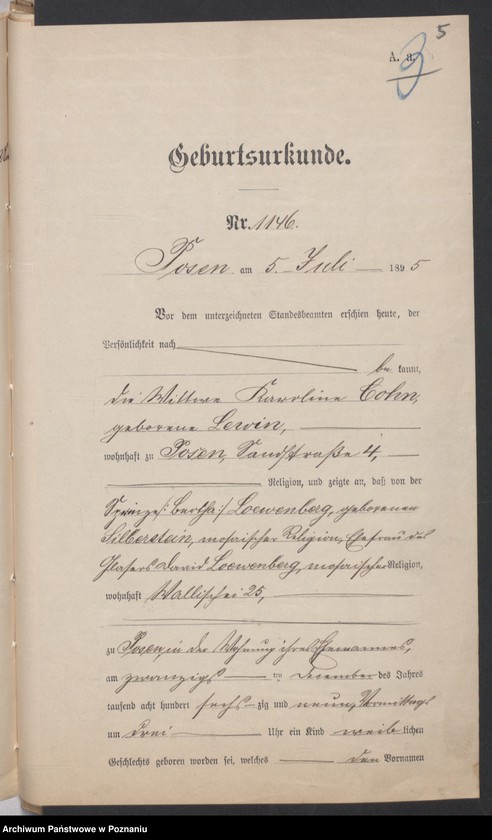 5
A. a.
3
Geburtsurkunde.
Nr. 1146.
Posen am 5. Juli 1895
Vor dem unterzeichneten Standesbeamten erschien heute, der
Persönlichkeit nach
be kannt,
die Wittwe Karoline Cohn,
geborene Lewin,
wohnhaft zu Posen, Sandstraße 4,
Religion, und zeigte an, daß von der
/: Bertha :/ Loewenberg, geborenen
Silberstein, mosaischer Religion, Ehefrau des
Glasers David Loewenberg, mosaischer Religion,
wohnhaft Wallischei 25,
zu Posen, in der Wohnung ihres Ehemannes,
am zwanzigs ten December des Jahres
tausend acht hundert sechs zig und neun, Vormittags
um drei Uhr ein Kind weib lichen
Geschlechts geboren worden sei, welches den Vornamen
Archiwum Państwowe w Poznaniu